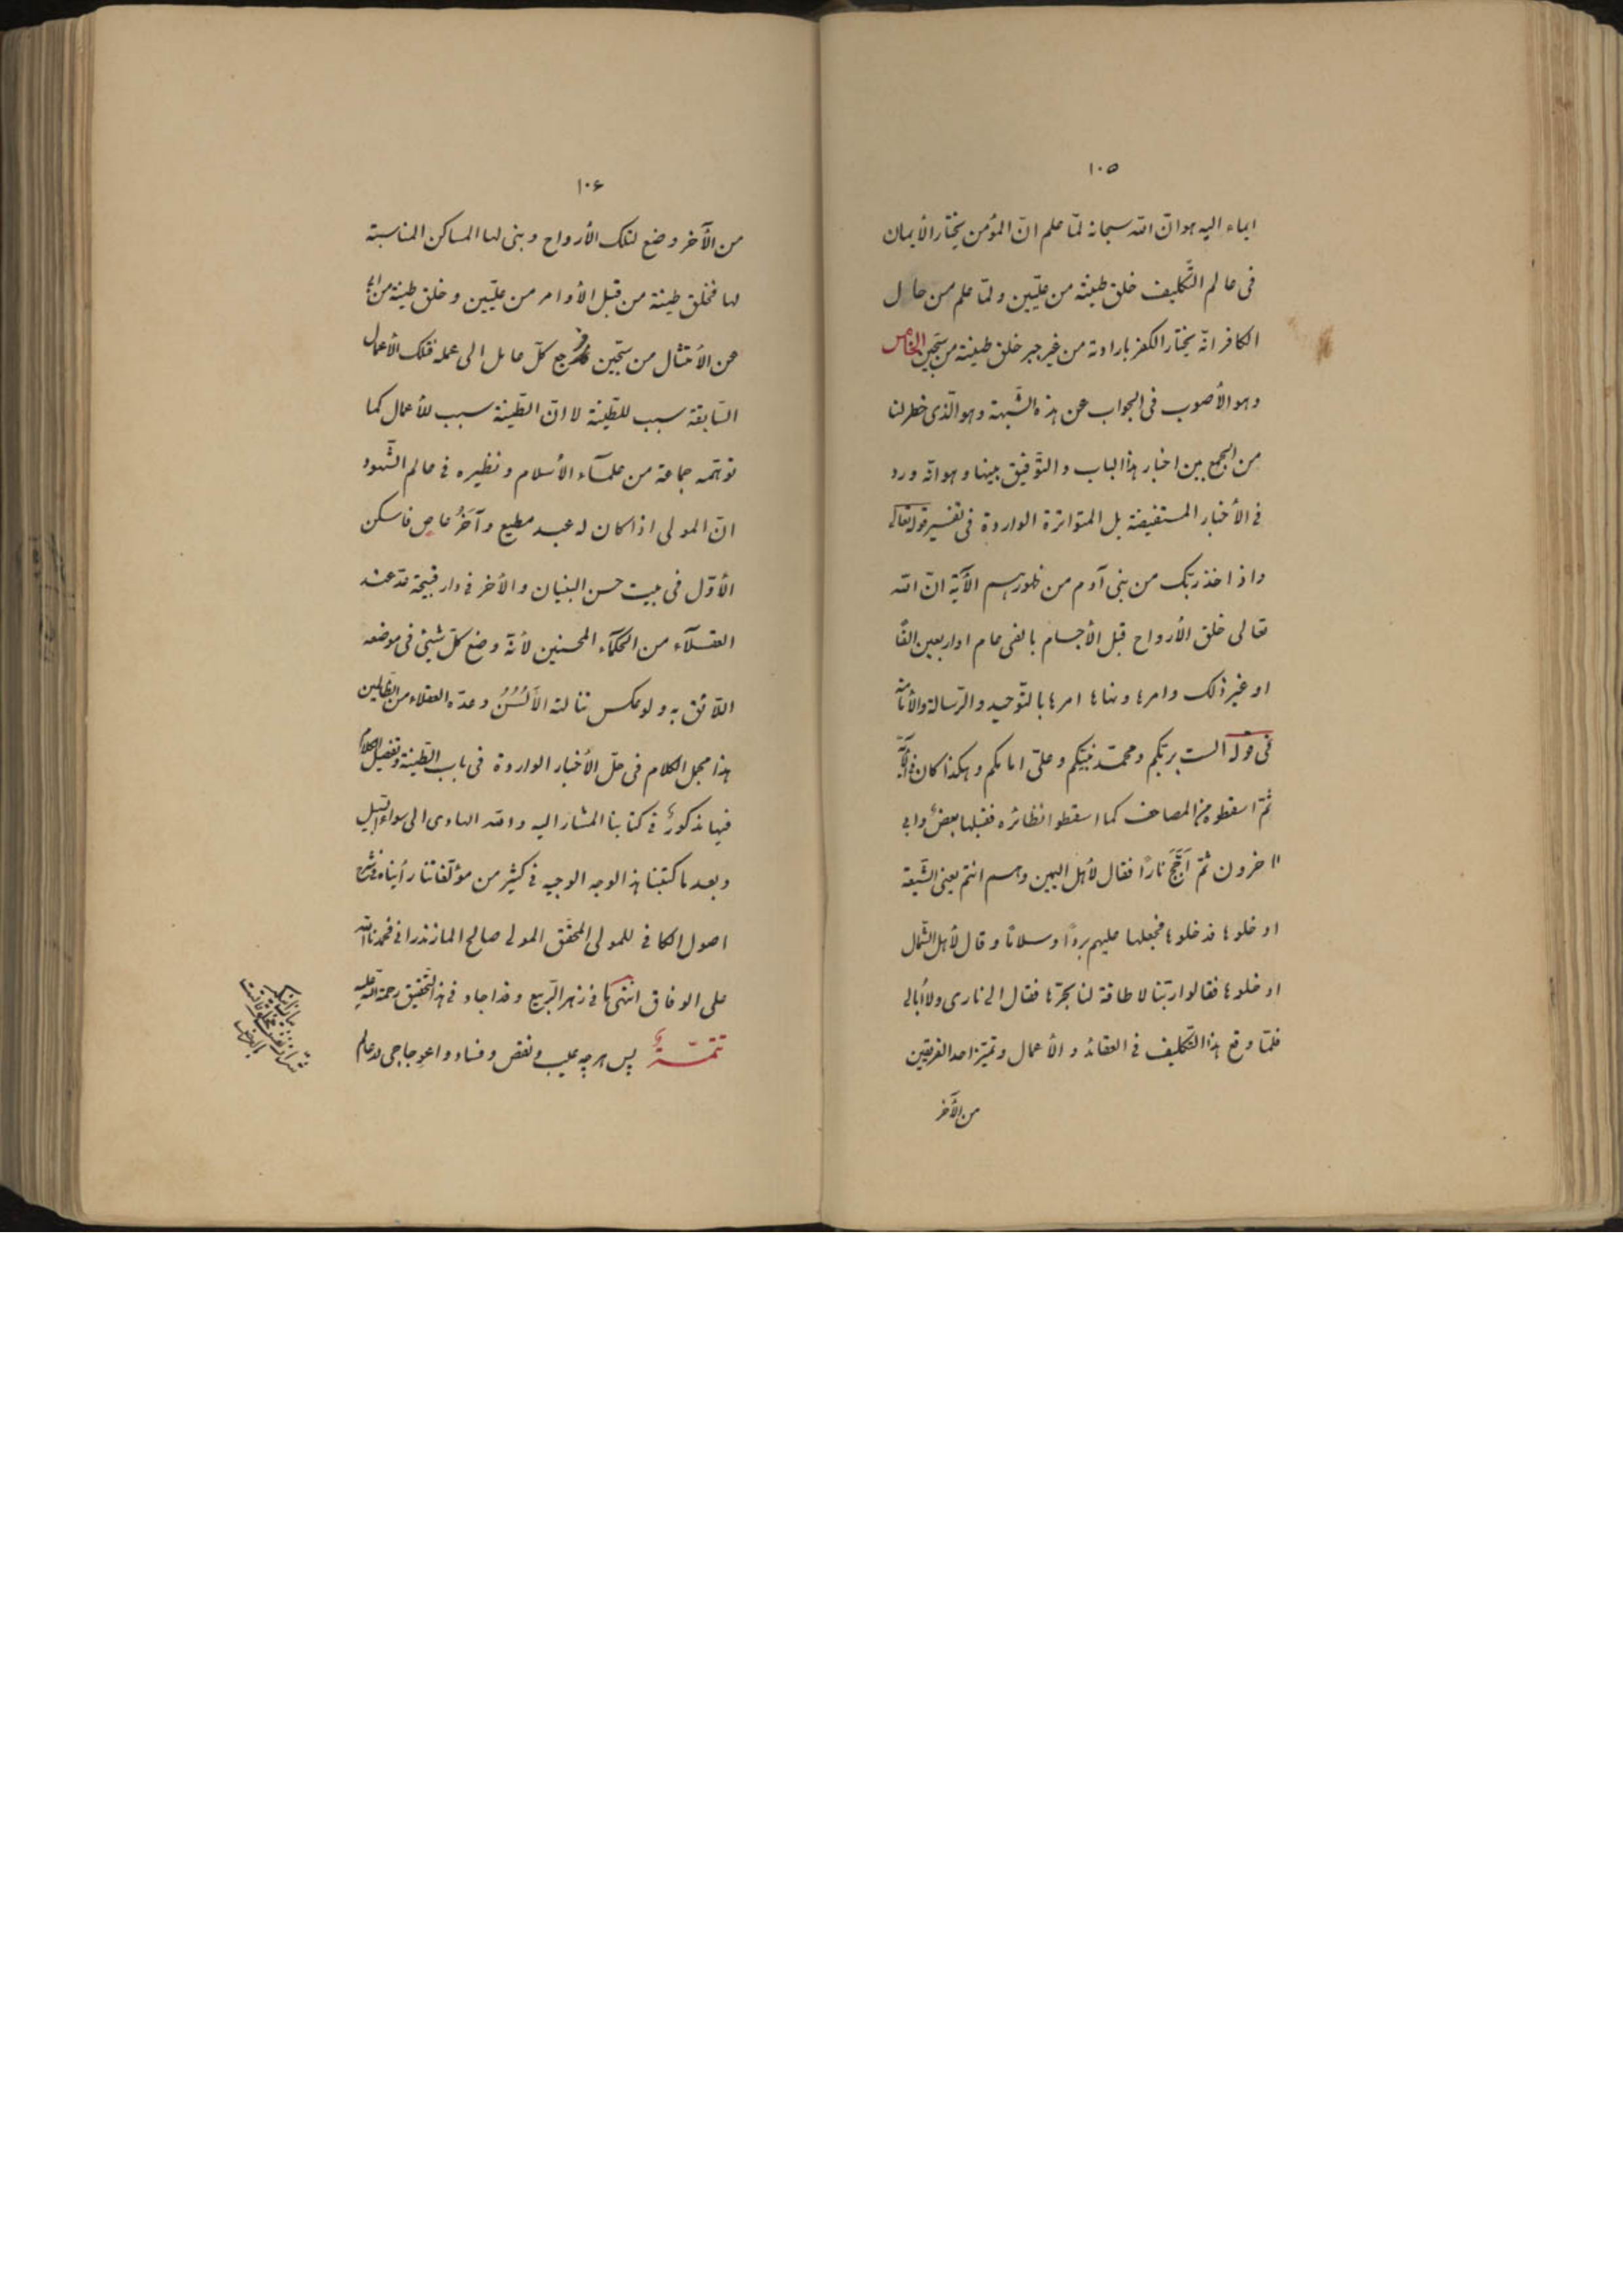 ۱۰۵
ایماء الیه هو انّ الله سبحانه لمّا علم انّ المؤمن یختار الأیمان
فی عالم التّکلیف خلق طینته من علیّین و لمّا علم من حال
الکافر انّه یختار الکفر بارادته من غیر جبر خلق طینته من سجّین الخامس
و هو الأصوب فی الجواب عن هذه الشّبهة و هو الّذی خطر لنا
من الجمع بین اخبار هذا الباب و التّوفیق بینها و هو انّه ورد
فی الأخبار المستفیضة بل المتواترة الواردة فی تفسیر قوله تعالی
و اذ اخذ ربّک من بنی آدم من ظهورهم الآیة انّ الله
تعالی خلق الأرواح قبل الأجسام بالفی عام او اربعین الفًا
او غیر ذلک و امرها و نهاها امرها بالتّوحید و الرّسالة و الأمامة
فی قوله الست بربّکم و محمّد نبیّکم و علیّ امامکم و هکذا کان فی الآیة
ثمّ اسقطوه من المصاحف کما اسقطوا نظائره فقبلها بعضٌ و ابی
اخرون ثمّ اَجَّجَ نارًا فقال لأهل الیمین و هم انتم یعنی الشّیعة
ادخلوها فدخلوها فجعلها علیهم بردًا و سلامًا و قال لأهل الشّمال
ادخلوها فقالوا ربّنا لا طاقة لنا بحرّها فقال الی ناری و لا أبالی
فلمّا وقع هذا التّکلیف فی العقائد و الأعمال و تمیّز احد الفریقین
من الآخر
۱۰۶
من الآخر وضع لتلک الأرواح و بنی لها المساکن المناسبة
لها فخلق طینة من قبل الأوامر من علیّین و خلق طینة من ابی
عن الأمتثال من سجّین فرجع کلّ عامل الی عمله فتلک الأعمال
السّابقة سبب للطّینة لا انّ الطّینة سبب للأعمال کما
توهّمه جماعة من علمآء الأسلام و نظیره فی عالم الشّهود
انّ المولی اذا کان له عبد مطیع و آخَرُ عاصٍ فاسکن
الأوّل فی بیت حسن البنیان و الأخر فی دار قبیحة مدّ عند
العقلآء من الحکمآء المحسنین لأنّه وضع کلّ شیئی فی موضعه
اللائق به و لو عکس نالته الألسُنُ و عدّه العقلاء من الظّالمین
هذا مجمل الکلام فی حلّ الأخبار الواردة فی باب الطّینة و تفصیل الکلام
فیها مذکورٌ فی کتابنا المشار الیه و الله الهادی الی سواء السّبیل
و بعد ما کتبنا هذا الوجه الوجیه فی کثیر من مؤلّفاتنا رأیناه فی شرح
اصول الکافی للمولی المحقّق المولی صالح المازندرانی فحمدنا الله
علی الوفاق انتهی ما فی زهر الرّبیع و قد اجاد فی هذا التّحقیق رحمة الله علیه
تتمّةٌ پس هر چه عیب و نقص و فساد و اعوجاجی در عالم